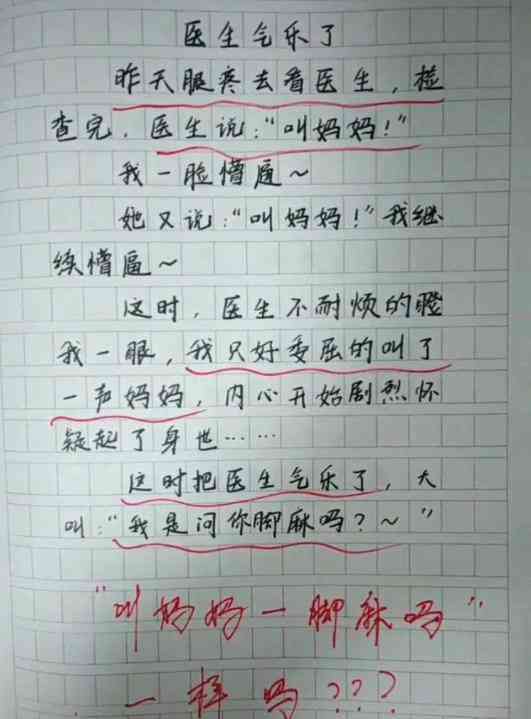 医生气乐了
昨天腿疼去看医生，检
查完，医生说：“叫妈妈！”
我一脸懵逼～
她又说：“叫妈妈！”我继
续懵逼～
这时，医生不耐烦的瞪
我一眼，我只好委屈的叫了
一声妈妈，内心开始剧烈怀
疑起了身世……
这时把医生气乐了，大
叫：“我是问你脚麻吗？～”
“叫妈妈—脚麻吗”
一样吗???